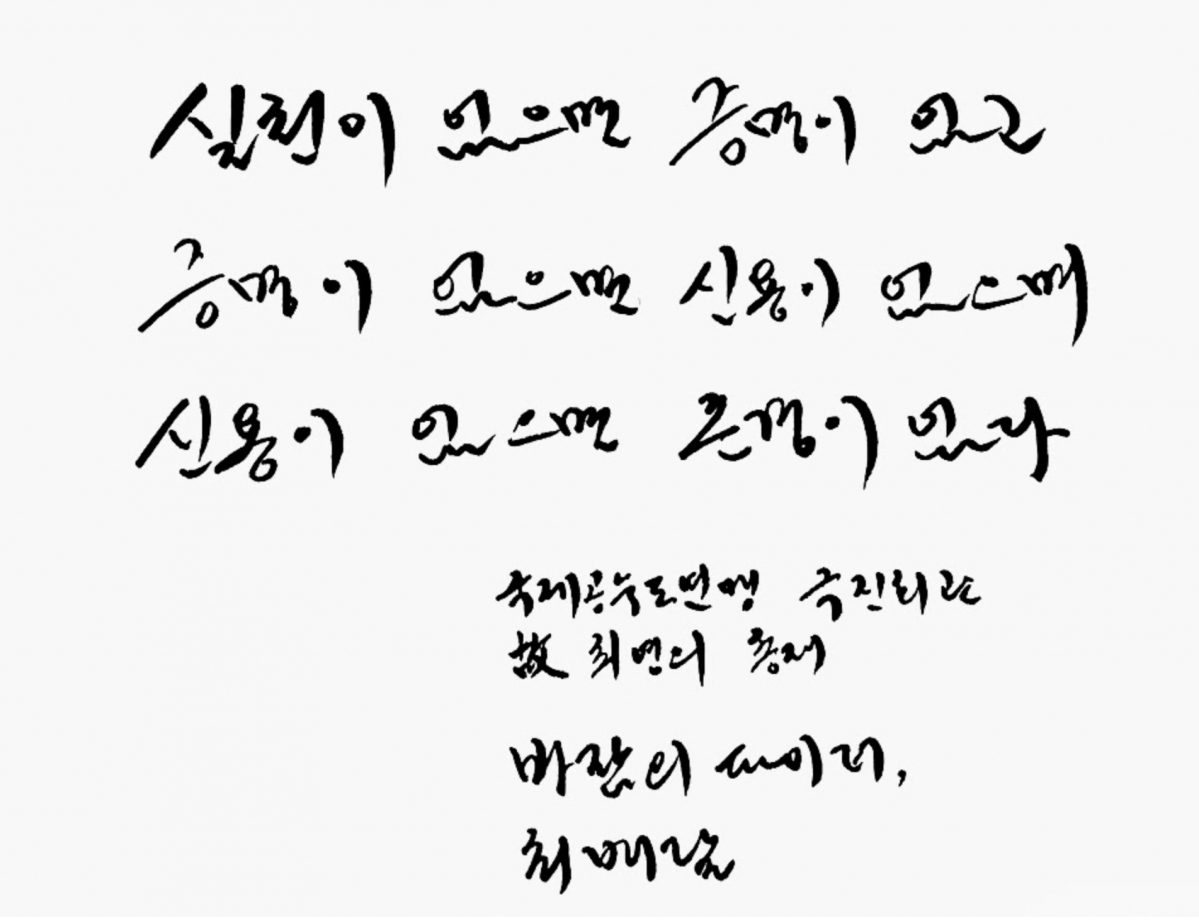 실천이 없으면 증명이 없고
증명이 없으면 신용이 없으며
신용이 없으면 존경이 없다
국제공수도연맹 극진회관
故 최영의 총재
바람의 싸이더,
최배달